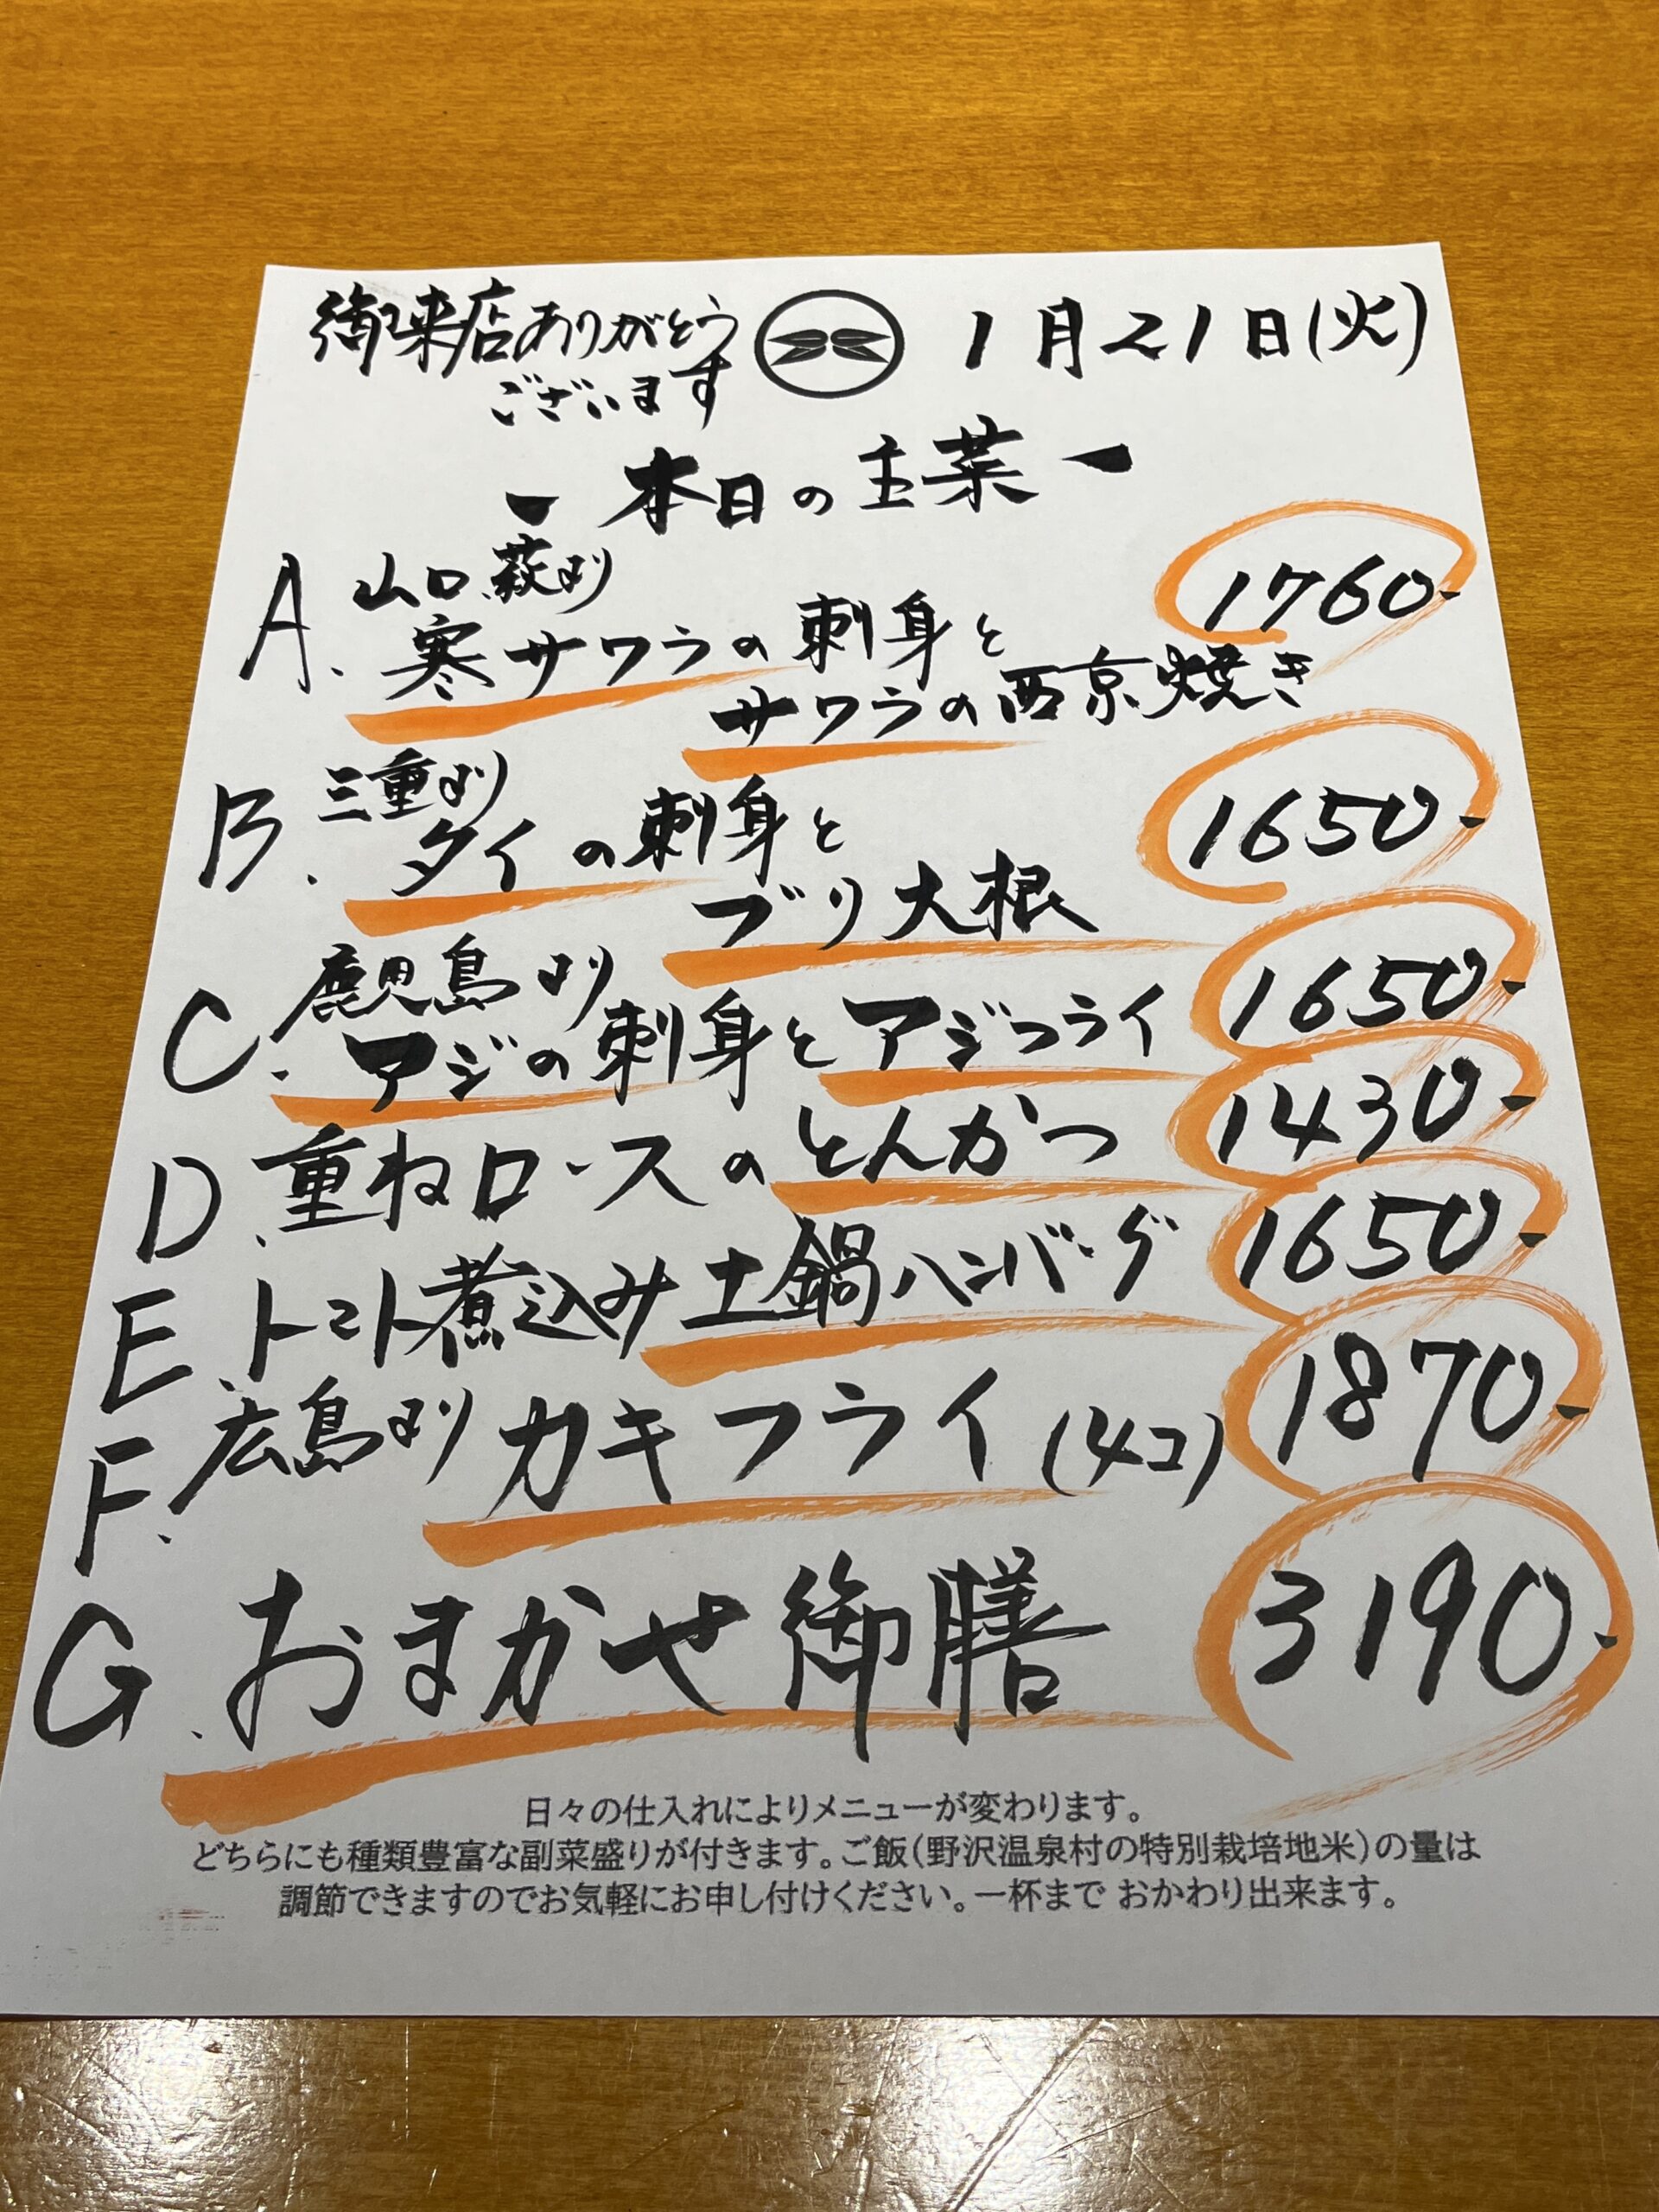 御来店ありがとう
ございます
1月21日(火)
ー本日の主菜ー
A. 山口、萩より
寒サワラの刺身と
サワラの西京焼き
1760-
B. 三重より
タイの刺身と
ブリ大根
1650-
C. 鹿児島より
アジの刺身とアジフライ
1650-
D. 重ねロースのとんかつ
1430-
E. トマト煮込み土鍋ハンバーグ
1650-
F. 広島よりカキフライ(4コ)
1870-
G. おまかせ御膳
3190-
日々の仕入れによりメニューが変わります。
どちらにも種類豊富な副菜盛りが付きます。ご飯(野沢温泉村の特別栽培地米)の量は
調節できますのでお気軽にお申し付けください。一杯まで おかわり出来ます。